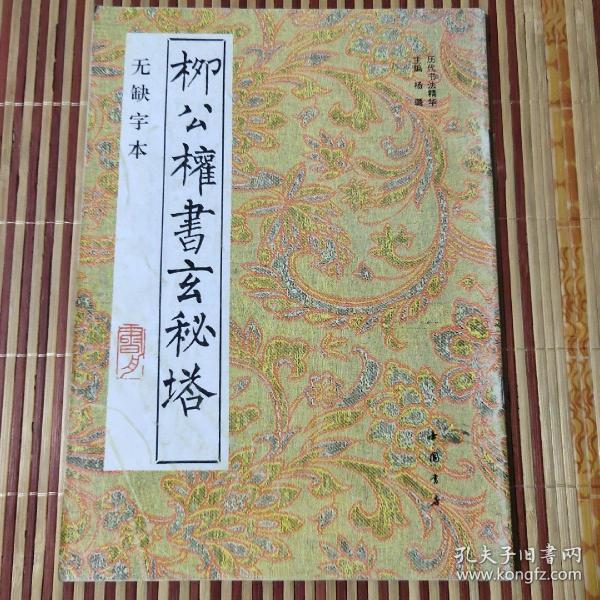 历代书法精华
主编 杨璐
柳公權書玄秘塔
无缺字本
中國書店
孔夫子旧书网
www.kongfz.com